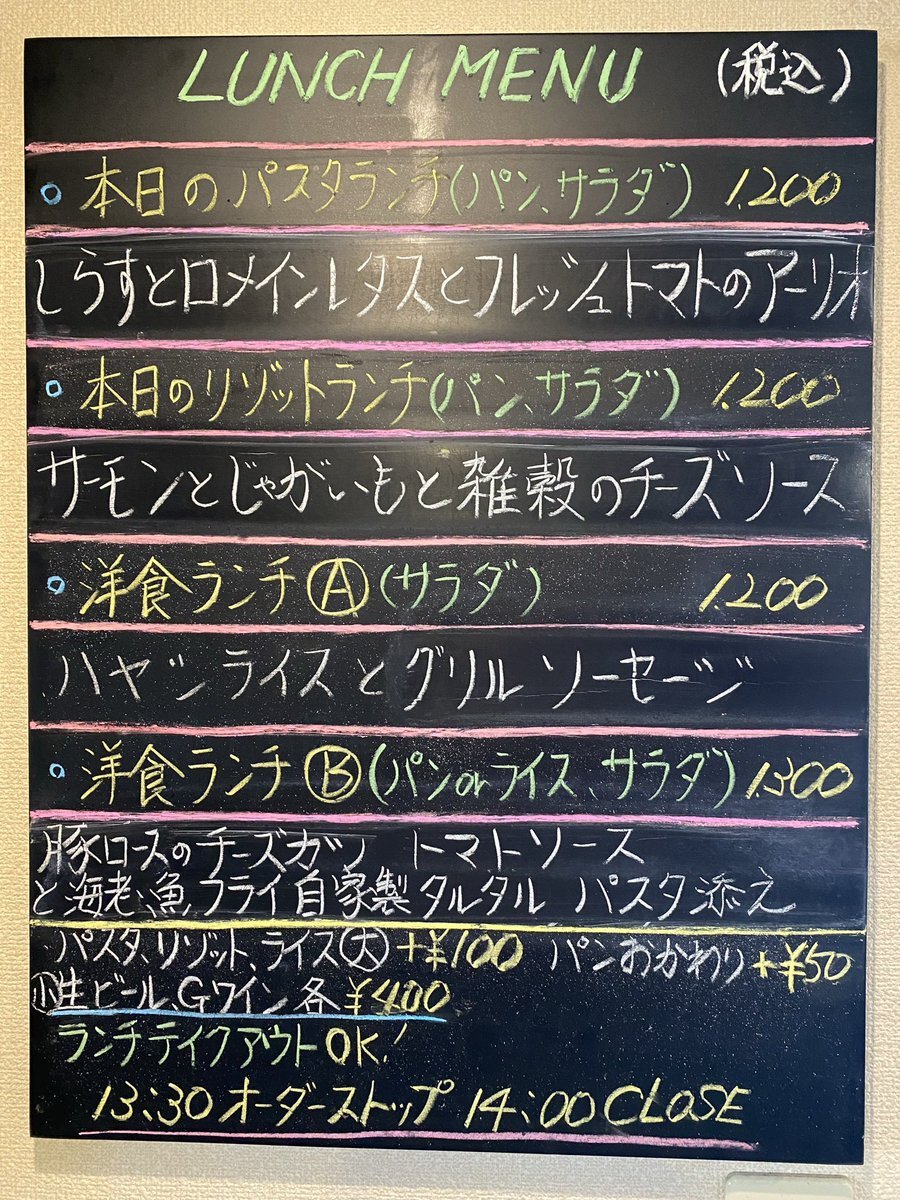 LUNCH MENU (税込)
本日のパスタランチ(パン、サラダ) 1.200
しらすとロメインレタスとフレッシュトマトのアーリオ
本日のリゾットランチ(パン、サラダ) 1.200
サーモンとじゃがいもと雑穀のチーズソース
洋食ランチⒶ(サラダ) 1.200
ハヤシライスとグリルソーセージ
洋食ランチⒷ(パンorライス、サラダ) 1.300
豚ロースのチーズカツ トマトソース
と海老、魚フライ自家製タルタル パスタ添え
パスタ、リゾット、ライス(大)+¥100 パンおかわり+¥50
(小)生ビール、Gワイン各¥400
ランチテイクアウトOK!
13:30オーダーストップ 14:00CLOSE